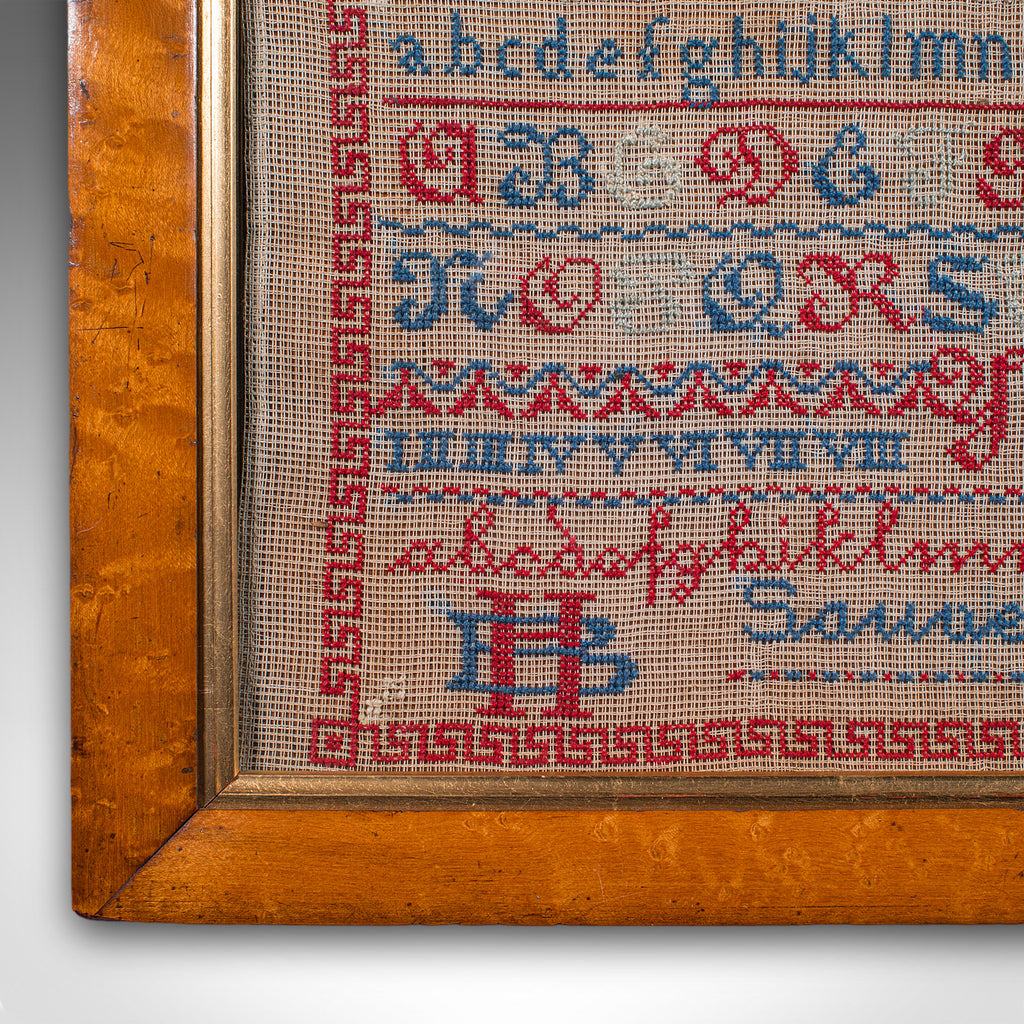 abcdefghijklmn
ABCDEFG
NOPQRS
I II III IV V VI VII VIII
abcdefghiklmn
HB